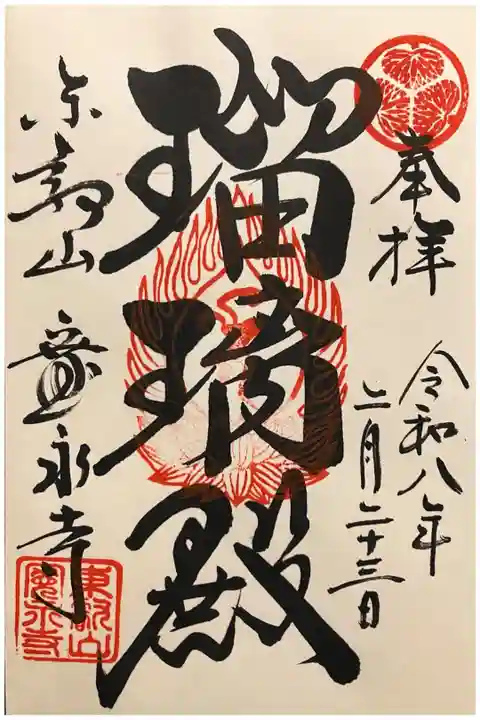 奉拝
令和八年
二月二十三日
瑠璃殿
東叡山
寛永寺
東叡山
寛永寺